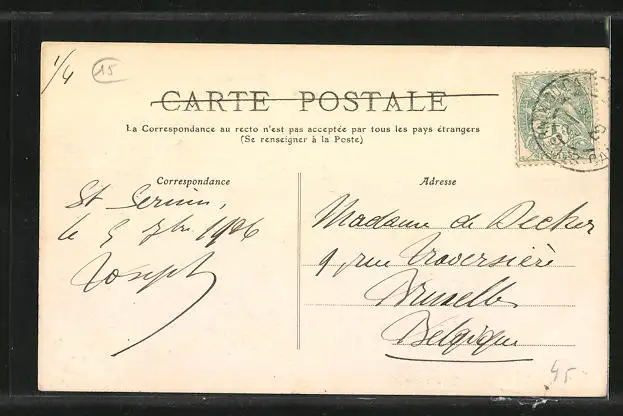 1/4
15
CARTE POSTALE
La Correspondance au recto n'est pas acceptée par tous les pays étrangers
(Se renseigner à la Poste)
Correspondance
St Sernin,
le 5 7bre 1906
Joseph
Adresse
Madame de Decker
9, rue Traversière
Bruxelles
Belgique
45.-